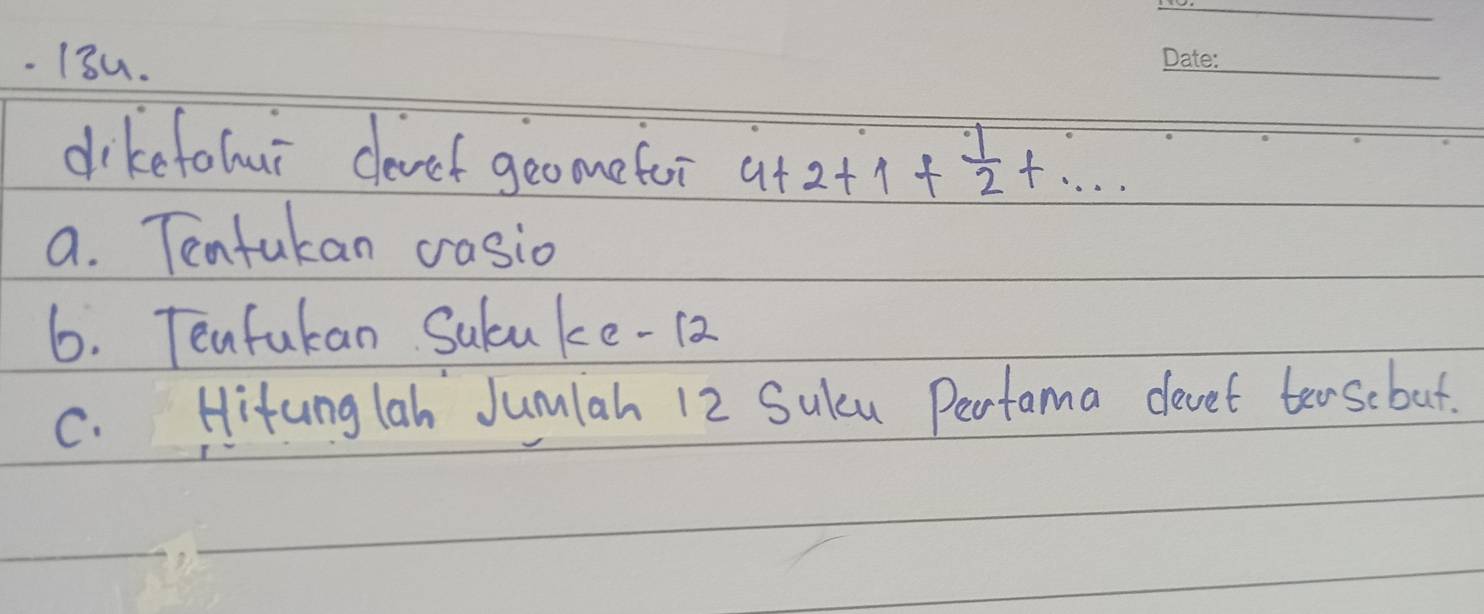 Date:
. 134.
diketahui deret geometri 4 + 2 + 1 + 1/2 + ....
a. Tentukan rasio
b. Tentukan Suku ke - 12
c. Hitunglah Jumlah 12 Suku Pertama deret tersebut.